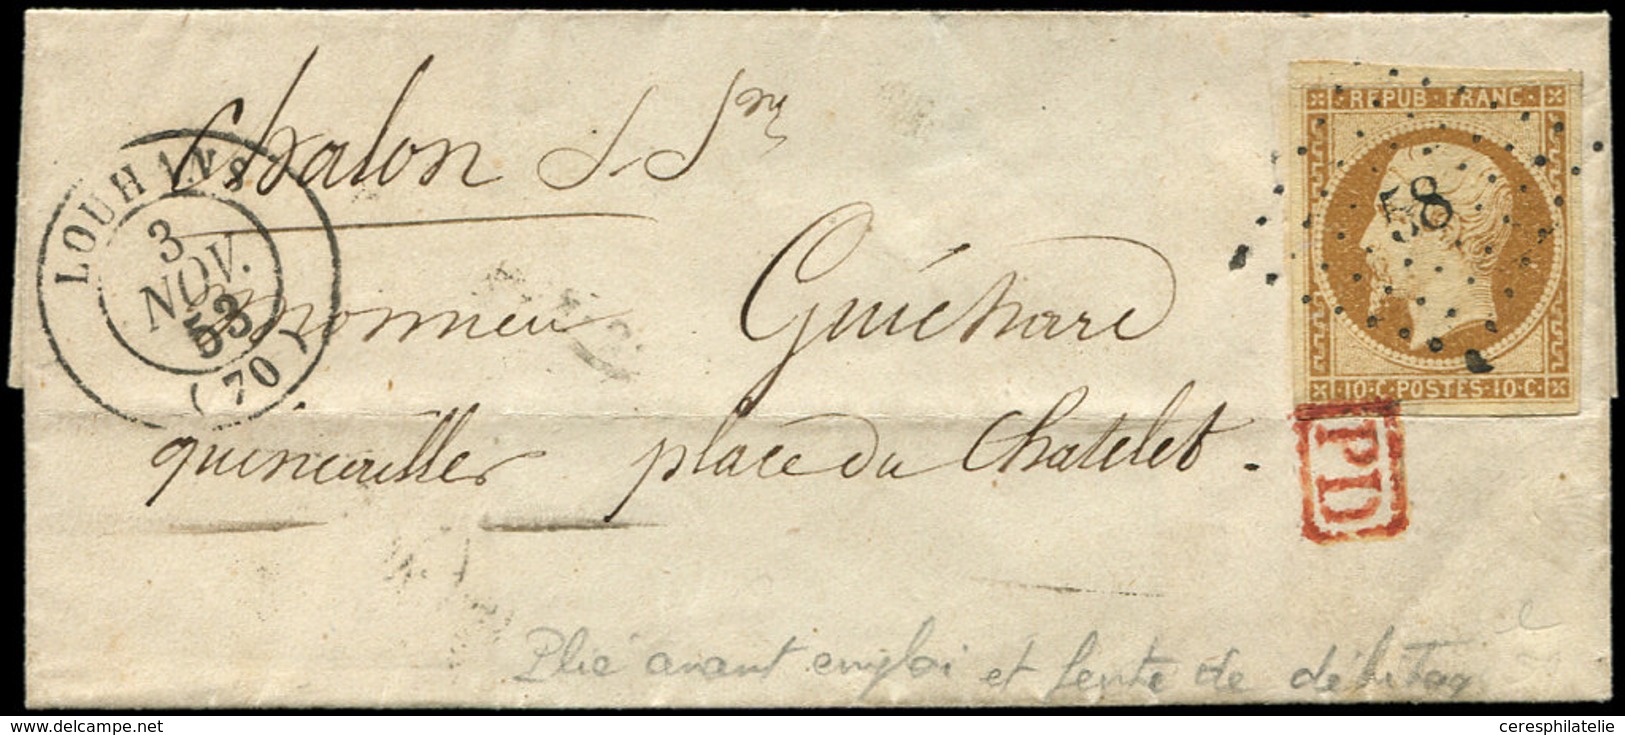 Chalon S Sne
REPUB·FRANC·
58
LOUHANS
3
NOV.
53
(70)
monsieur Guichard
10·C·POSTES·10·C·
quincailler place du Chatelet.
PD
Plié avant emploi et fente de débitage
www.delcampe.net
ceresphilatelie